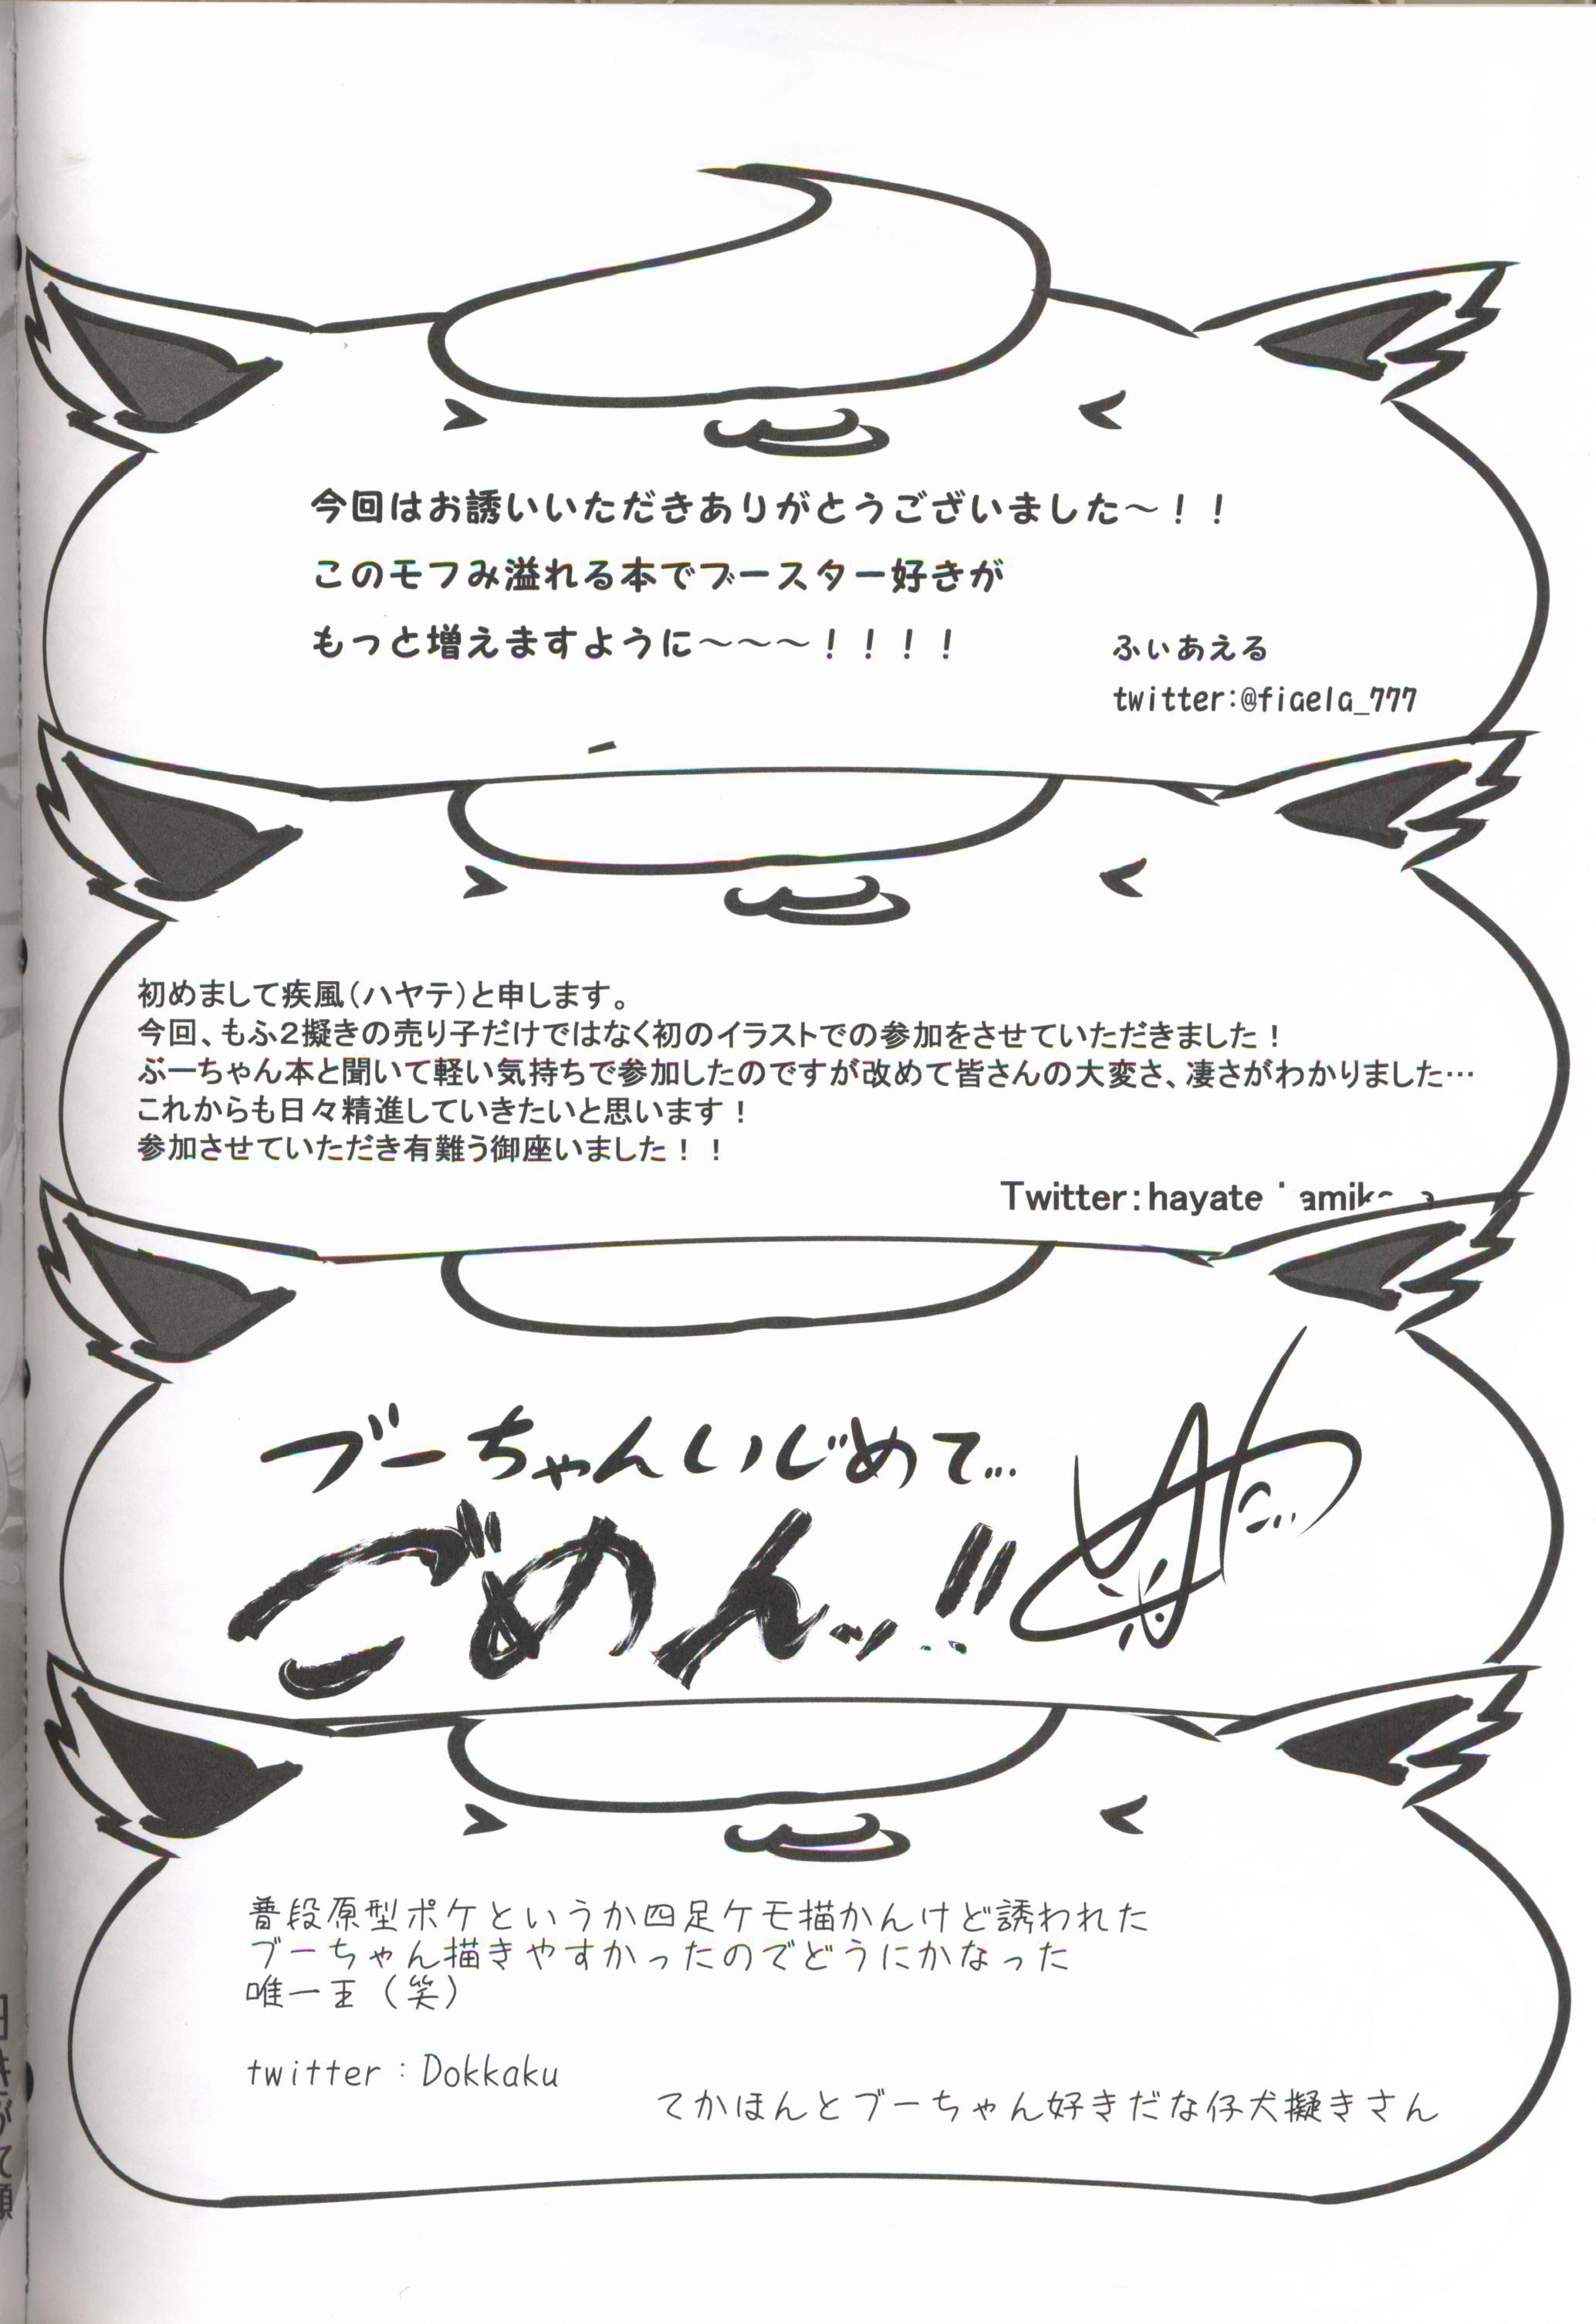 今回はお誘いいただきありがとうございました～！！
このモフみ溢れる本でブースター好きが
もっと増えますように～～～！！！！
ふぃあえる
twitter:@fiaela_777
初めまして疾風(ハヤテ)と申します。
今回、もふ２擬きの売り子だけではなく初のイラストでの参加をさせていただきました！
ぶーちゃん本と聞いて軽い気持ちで参加したのですが改めて皆さんの大変さ、凄さがわかりました…
これからも日々精進していきたいと思います！
参加させていただき有難う御座いました！！
Twitter：hayate
ブーちゃんいじめて…
ごめんッ!!
普段原型ポケというか四足ケモ描かんけど誘われた
ブーちゃん描きやすかったのでどうにかなった
唯一王（笑）
twitter：Dokkaku
てかほんとブーちゃん好きだな仔犬擬きさん